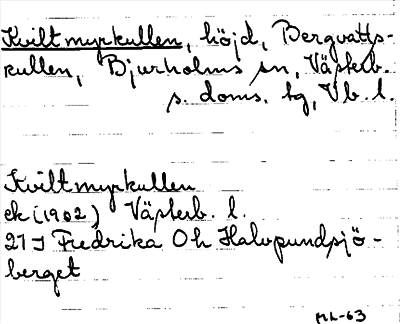 Kviltmyrkullen, höjd, Bergvatts-
kullen, Bjurholms sn, Västerb.
s. doms. tg, Vb l.
Kviltmyrkullen
ek (1902) Västerb. l.
21 J Fredrika Oh Halvpundsjö-
berget
ML-63